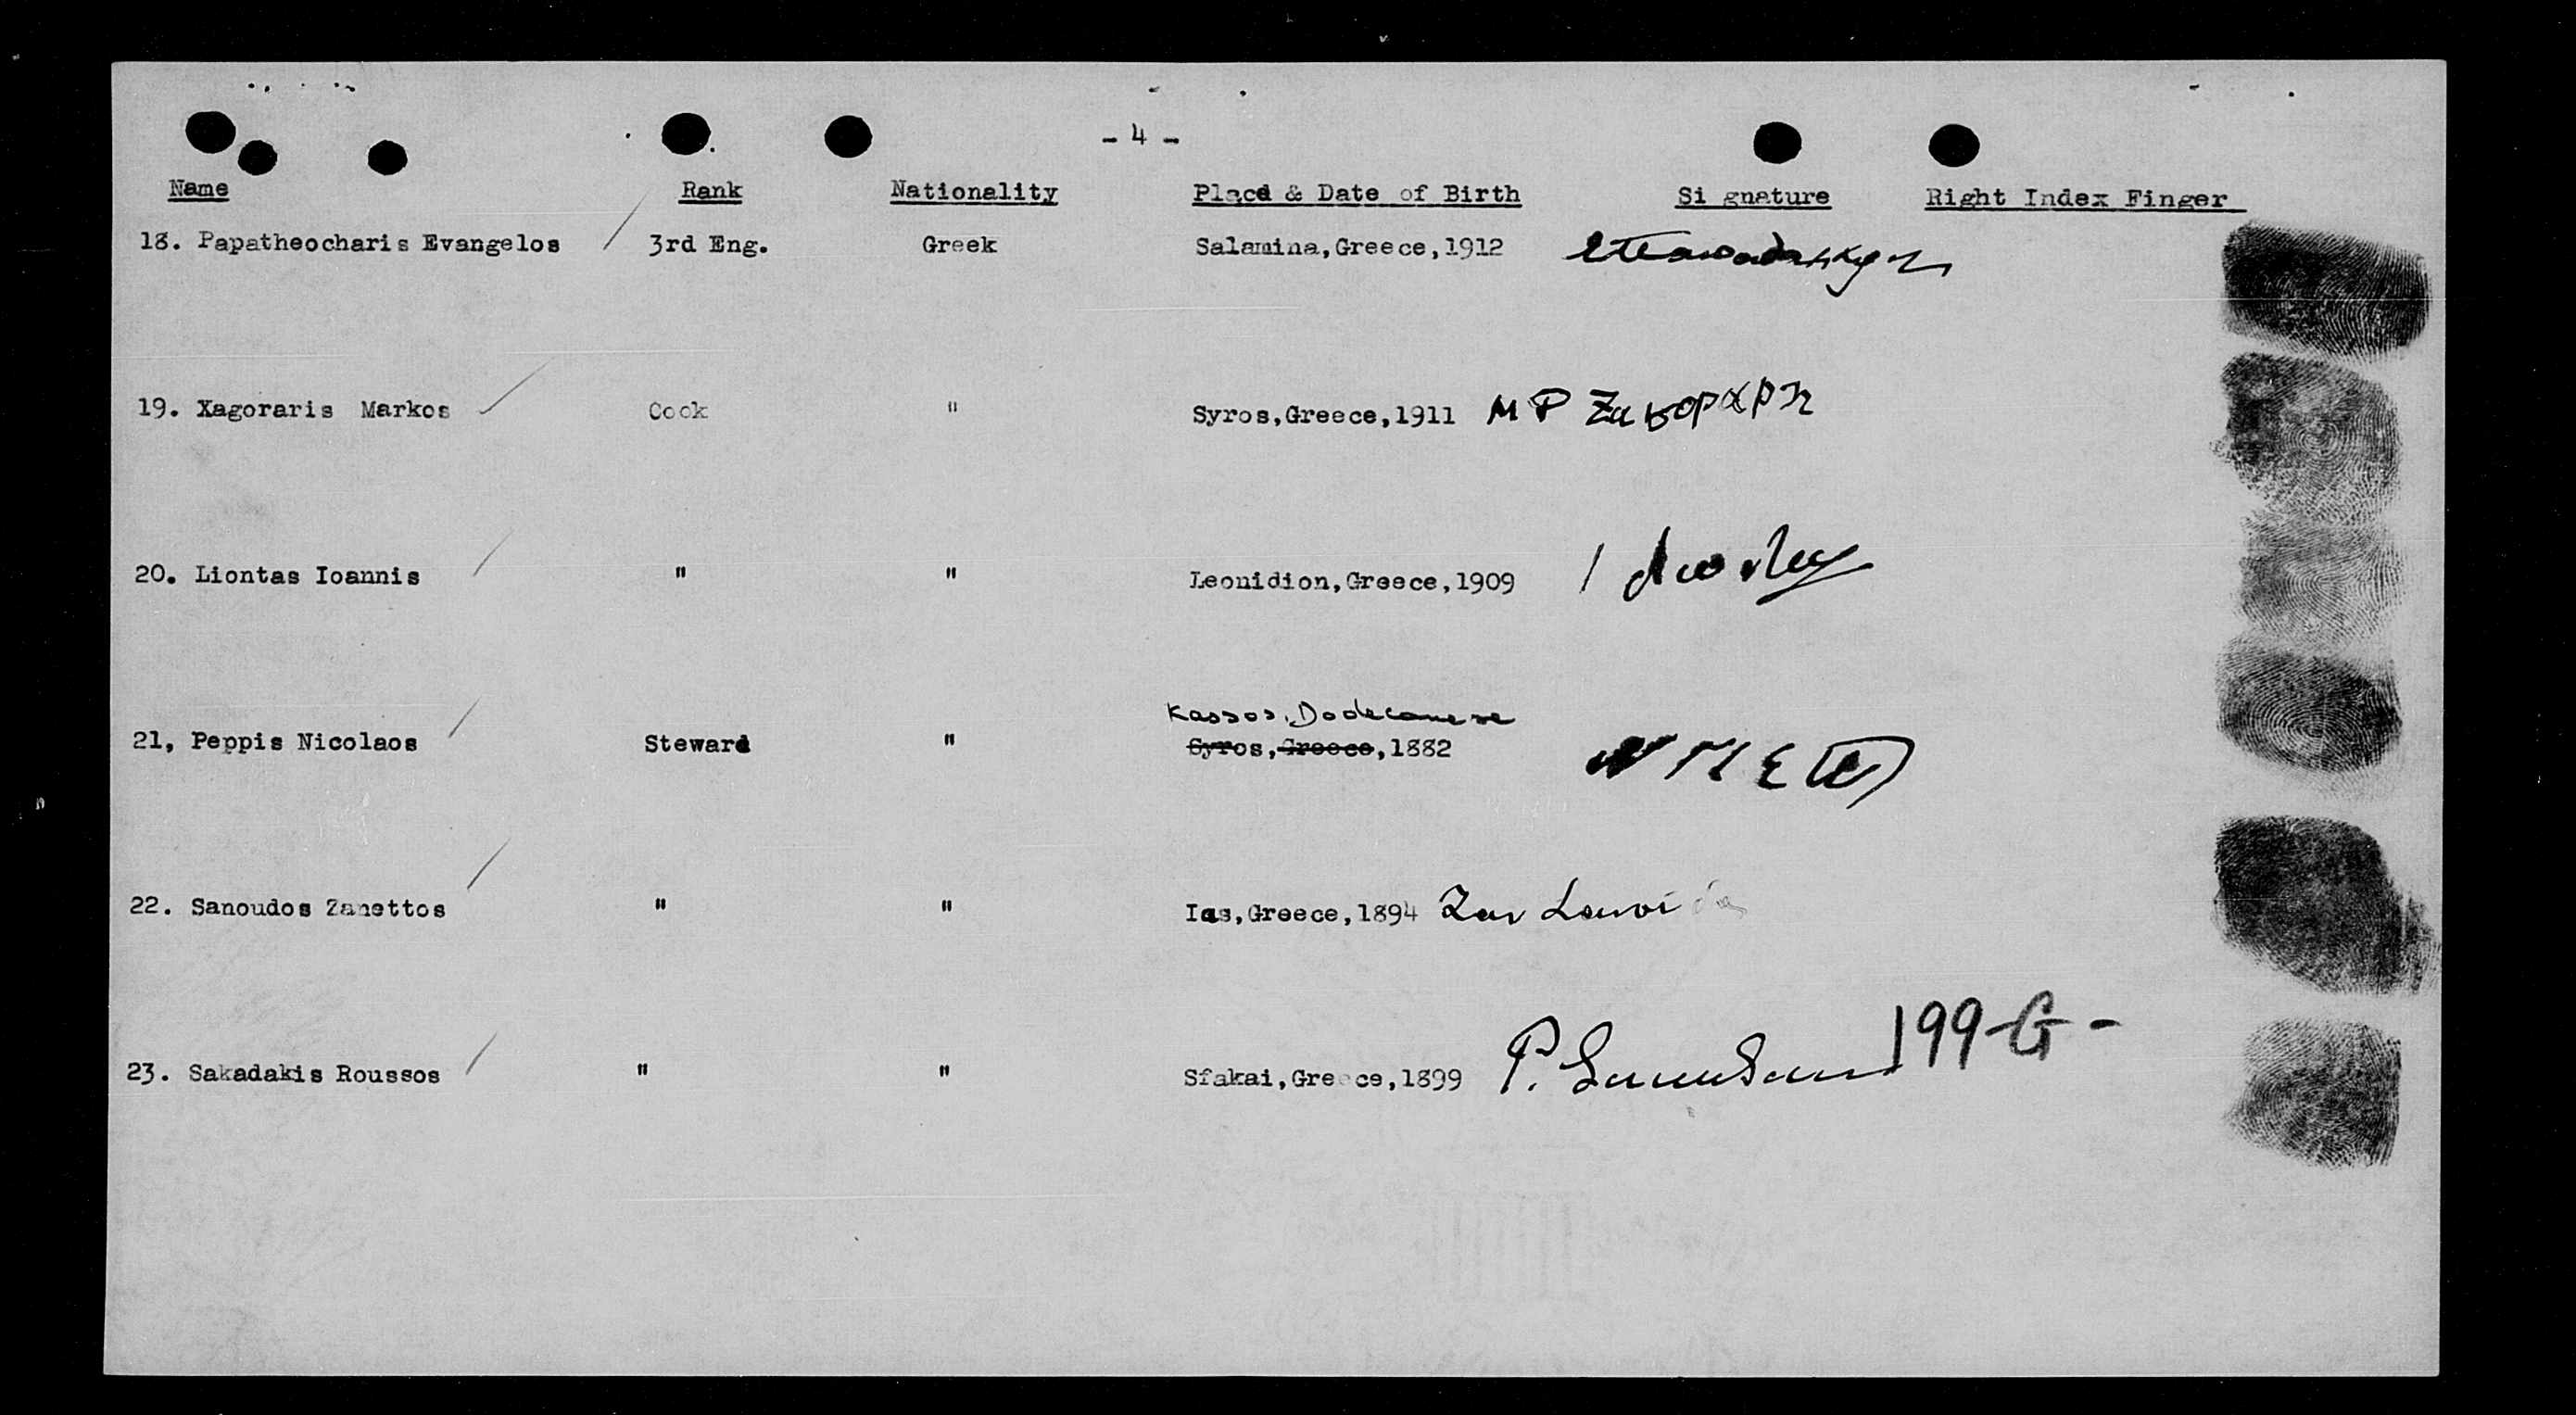 - 4 -
Name Rank Nationality Place & Date of Birth Si gnature Right Index Finger
18. Papatheocharis Evangelos 3rd Eng. Greek Salamina,Greece,1912
19. Xagoraris Markos Cook " Syros,Greece,1911 Μ Ρ
20. Liontas Ioannis " " Leonidion,Greece,1909
Kassos, Dodecanese
21, Peppis Nicolaos Steward " Syros,Greece,1882
22. Sanoudos Zanettos " " Ias,Greece,1894 Ζαν
199-G-
23. Sakadakis Roussos " " Sfakai,Greece,1899 Ρ.